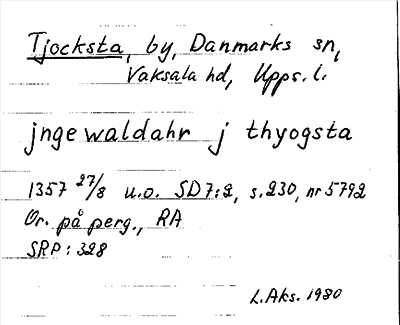 Tjocksta, by, Danmarks sn,
Vaksala hd, Upps. l.
jnge waldahr j thyogsta
1357 27/8 u.o. SD 7:2, s. 230, nr 5792
Or. på perg., RA
SRP: 328
L. Aks. 1980